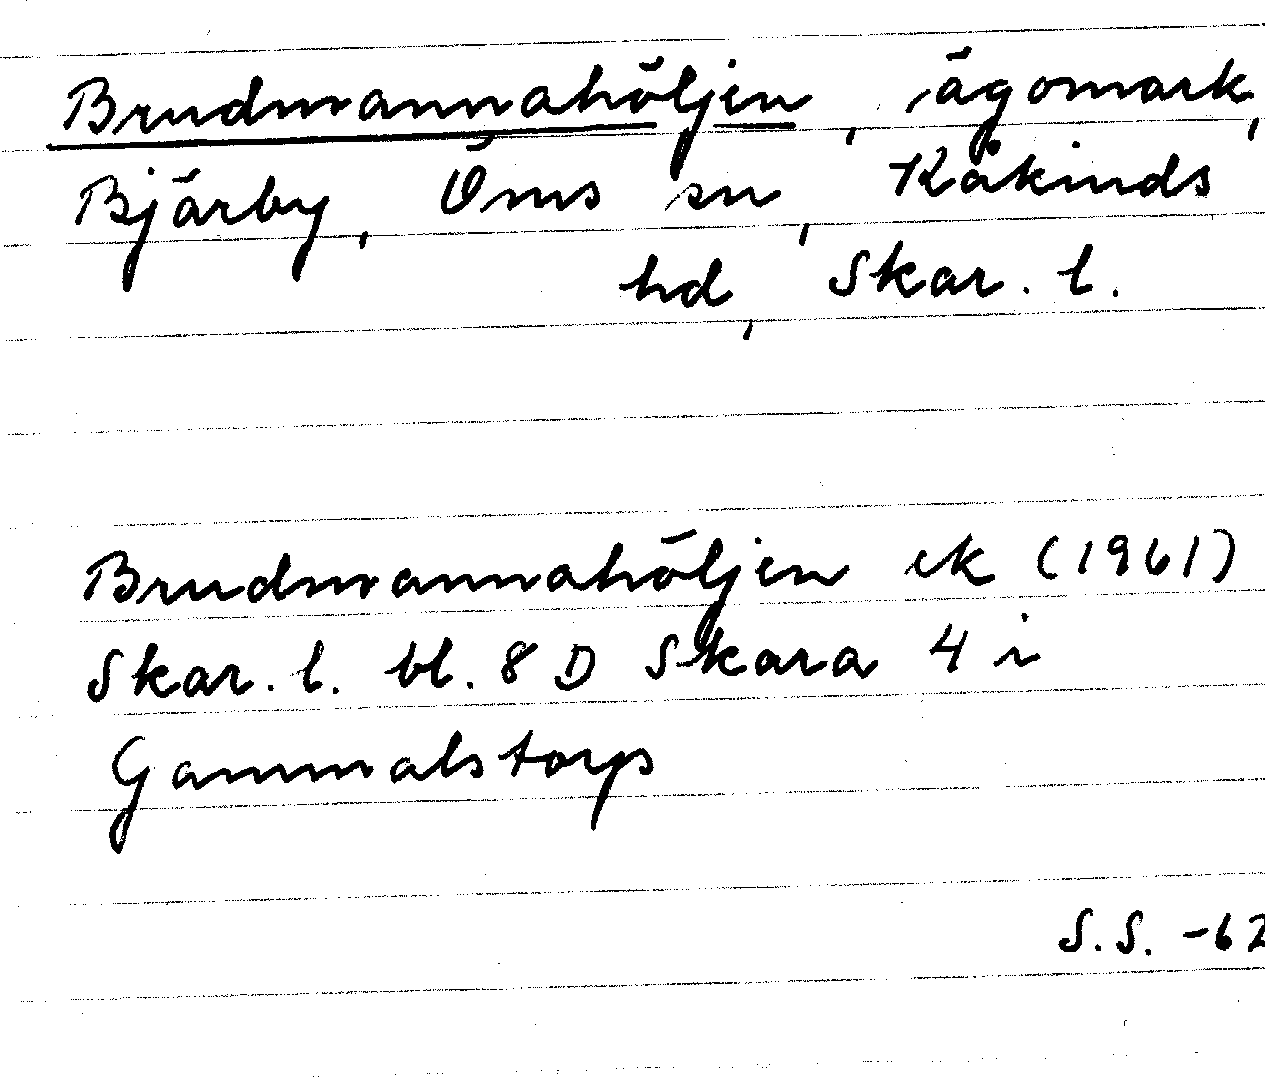 Brudmannahöljen, ägomark,
Bjärby, Öms sn, Kåkinds
hd, Skar. l.
Brudmannahöljen ek (1961)
Skar. l. bl. 8 D Skara 4 i
Gammalstorps
S.S. -62